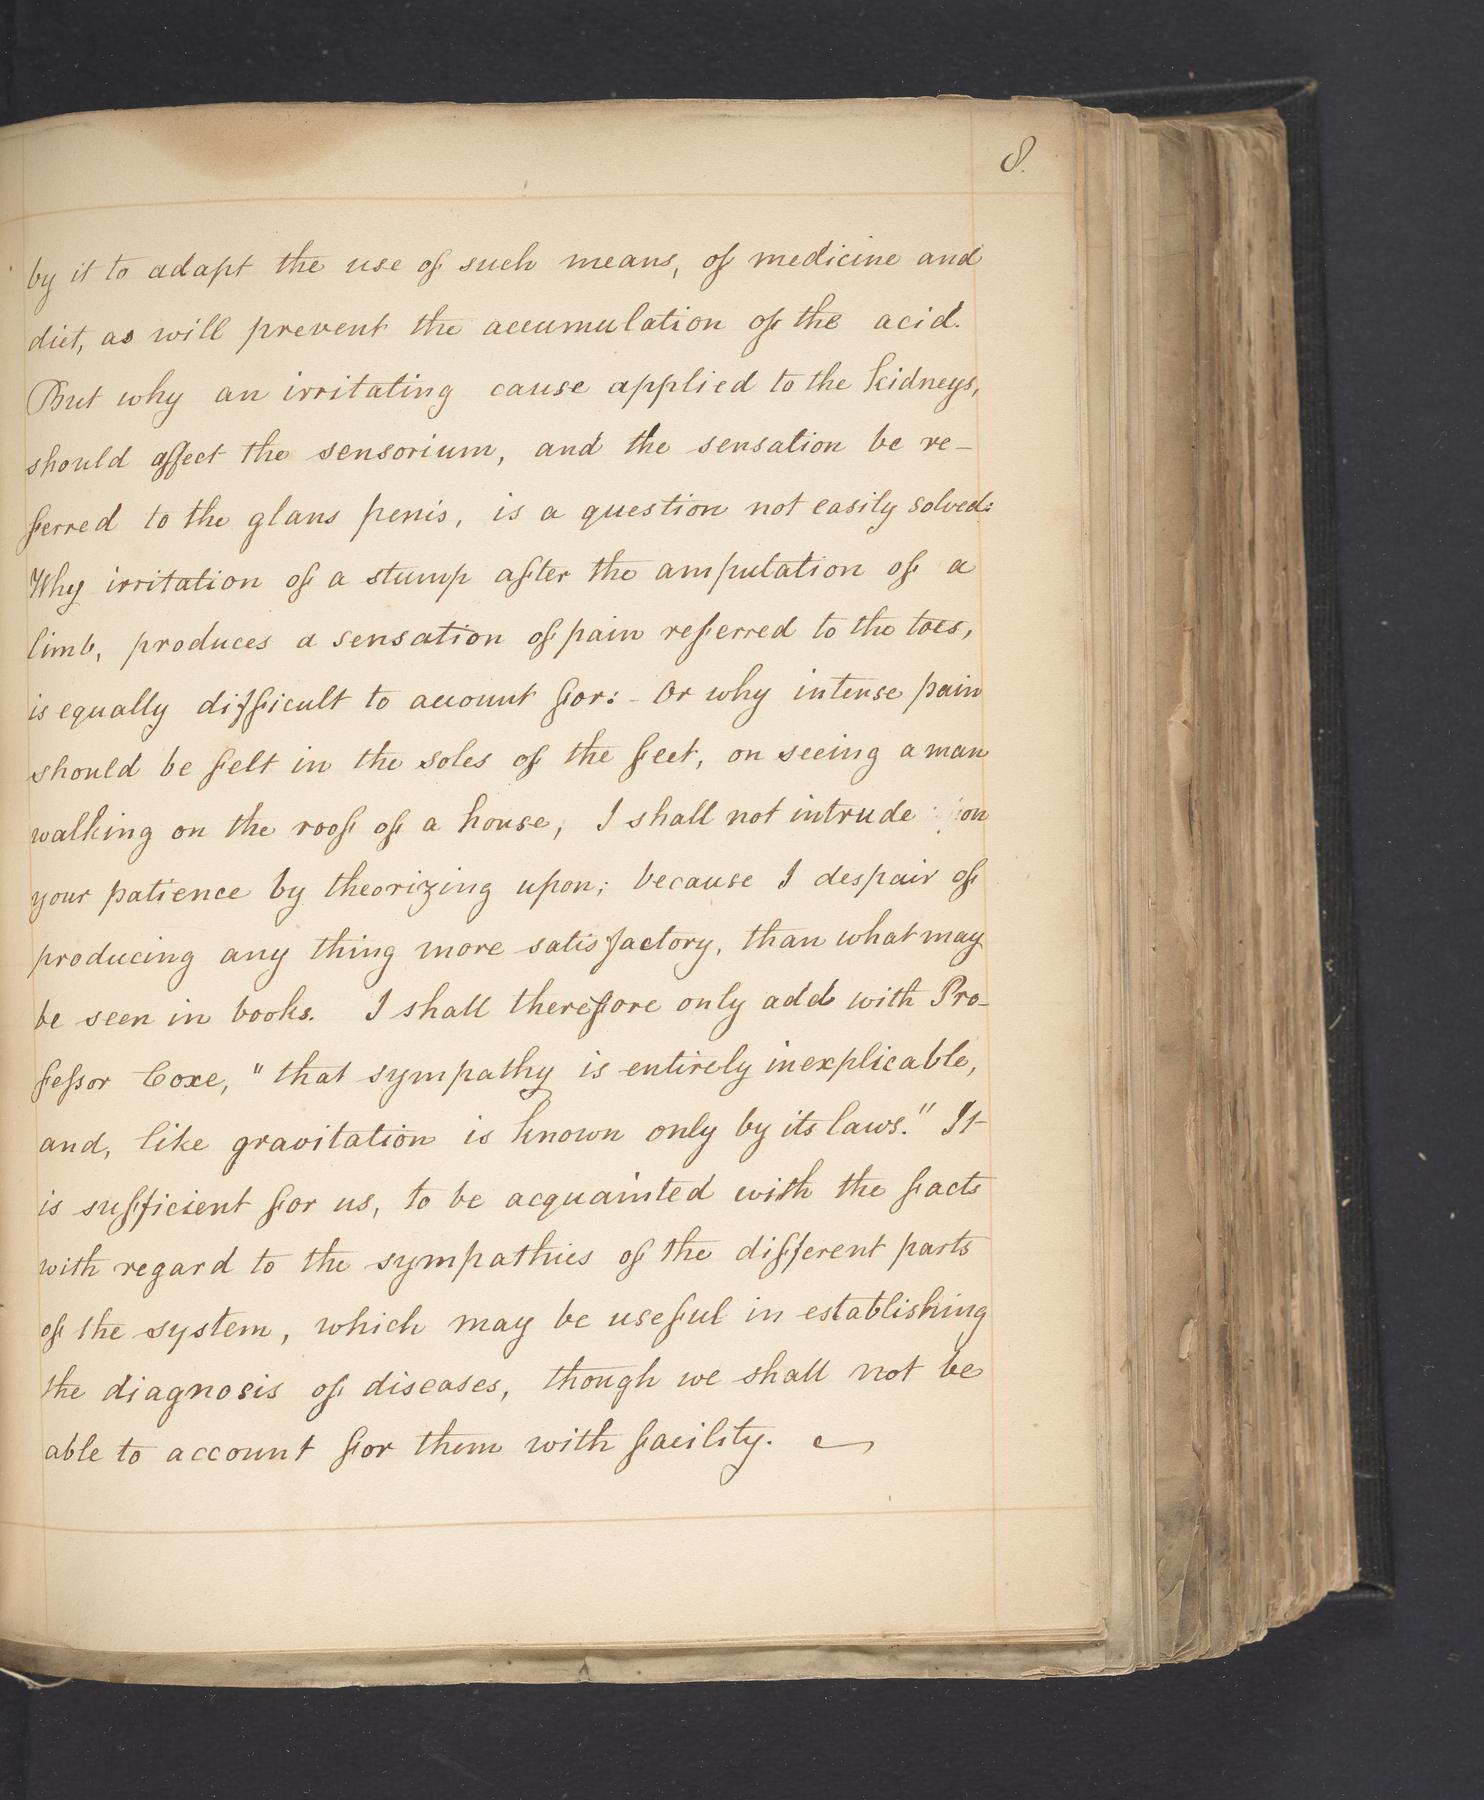 8.
by it to adapt the use of such means, of medicine and
diet, as will prevent the accumulation of the acid.
But why an irritating cause applied to the kidneys,
should affect the sensorium, and the sensation be re-
ferred to the glans penis, is a question not easily solved:
Why irritation of a stump after the amputation of a
limb, produces a sensation of pain referred to the toes,
is equally difficult to account for: - Or why intense pain
should be felt in the soles of the feet, on seeing a man
walking on the roof of a house, I shall not intrude on
your patience by theorizing upon; because I despair of
producing any thing more satisfactory, than what may
be seen in books. I shall therefore only add with Pro-
feſsor Coxe, "that sympathy is entirely inexplicable,
and, like gravitation is known only by its laws." It
is sufficient for us, to be acquainted with the facts
with regard to the sympathies of the different parts
of the system, which may be useful in establishing
the diagnosis of diseases, though we shall not be
able to account for them with facility.